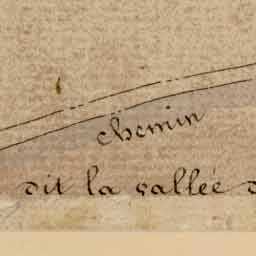 chemin
dit la vallée d